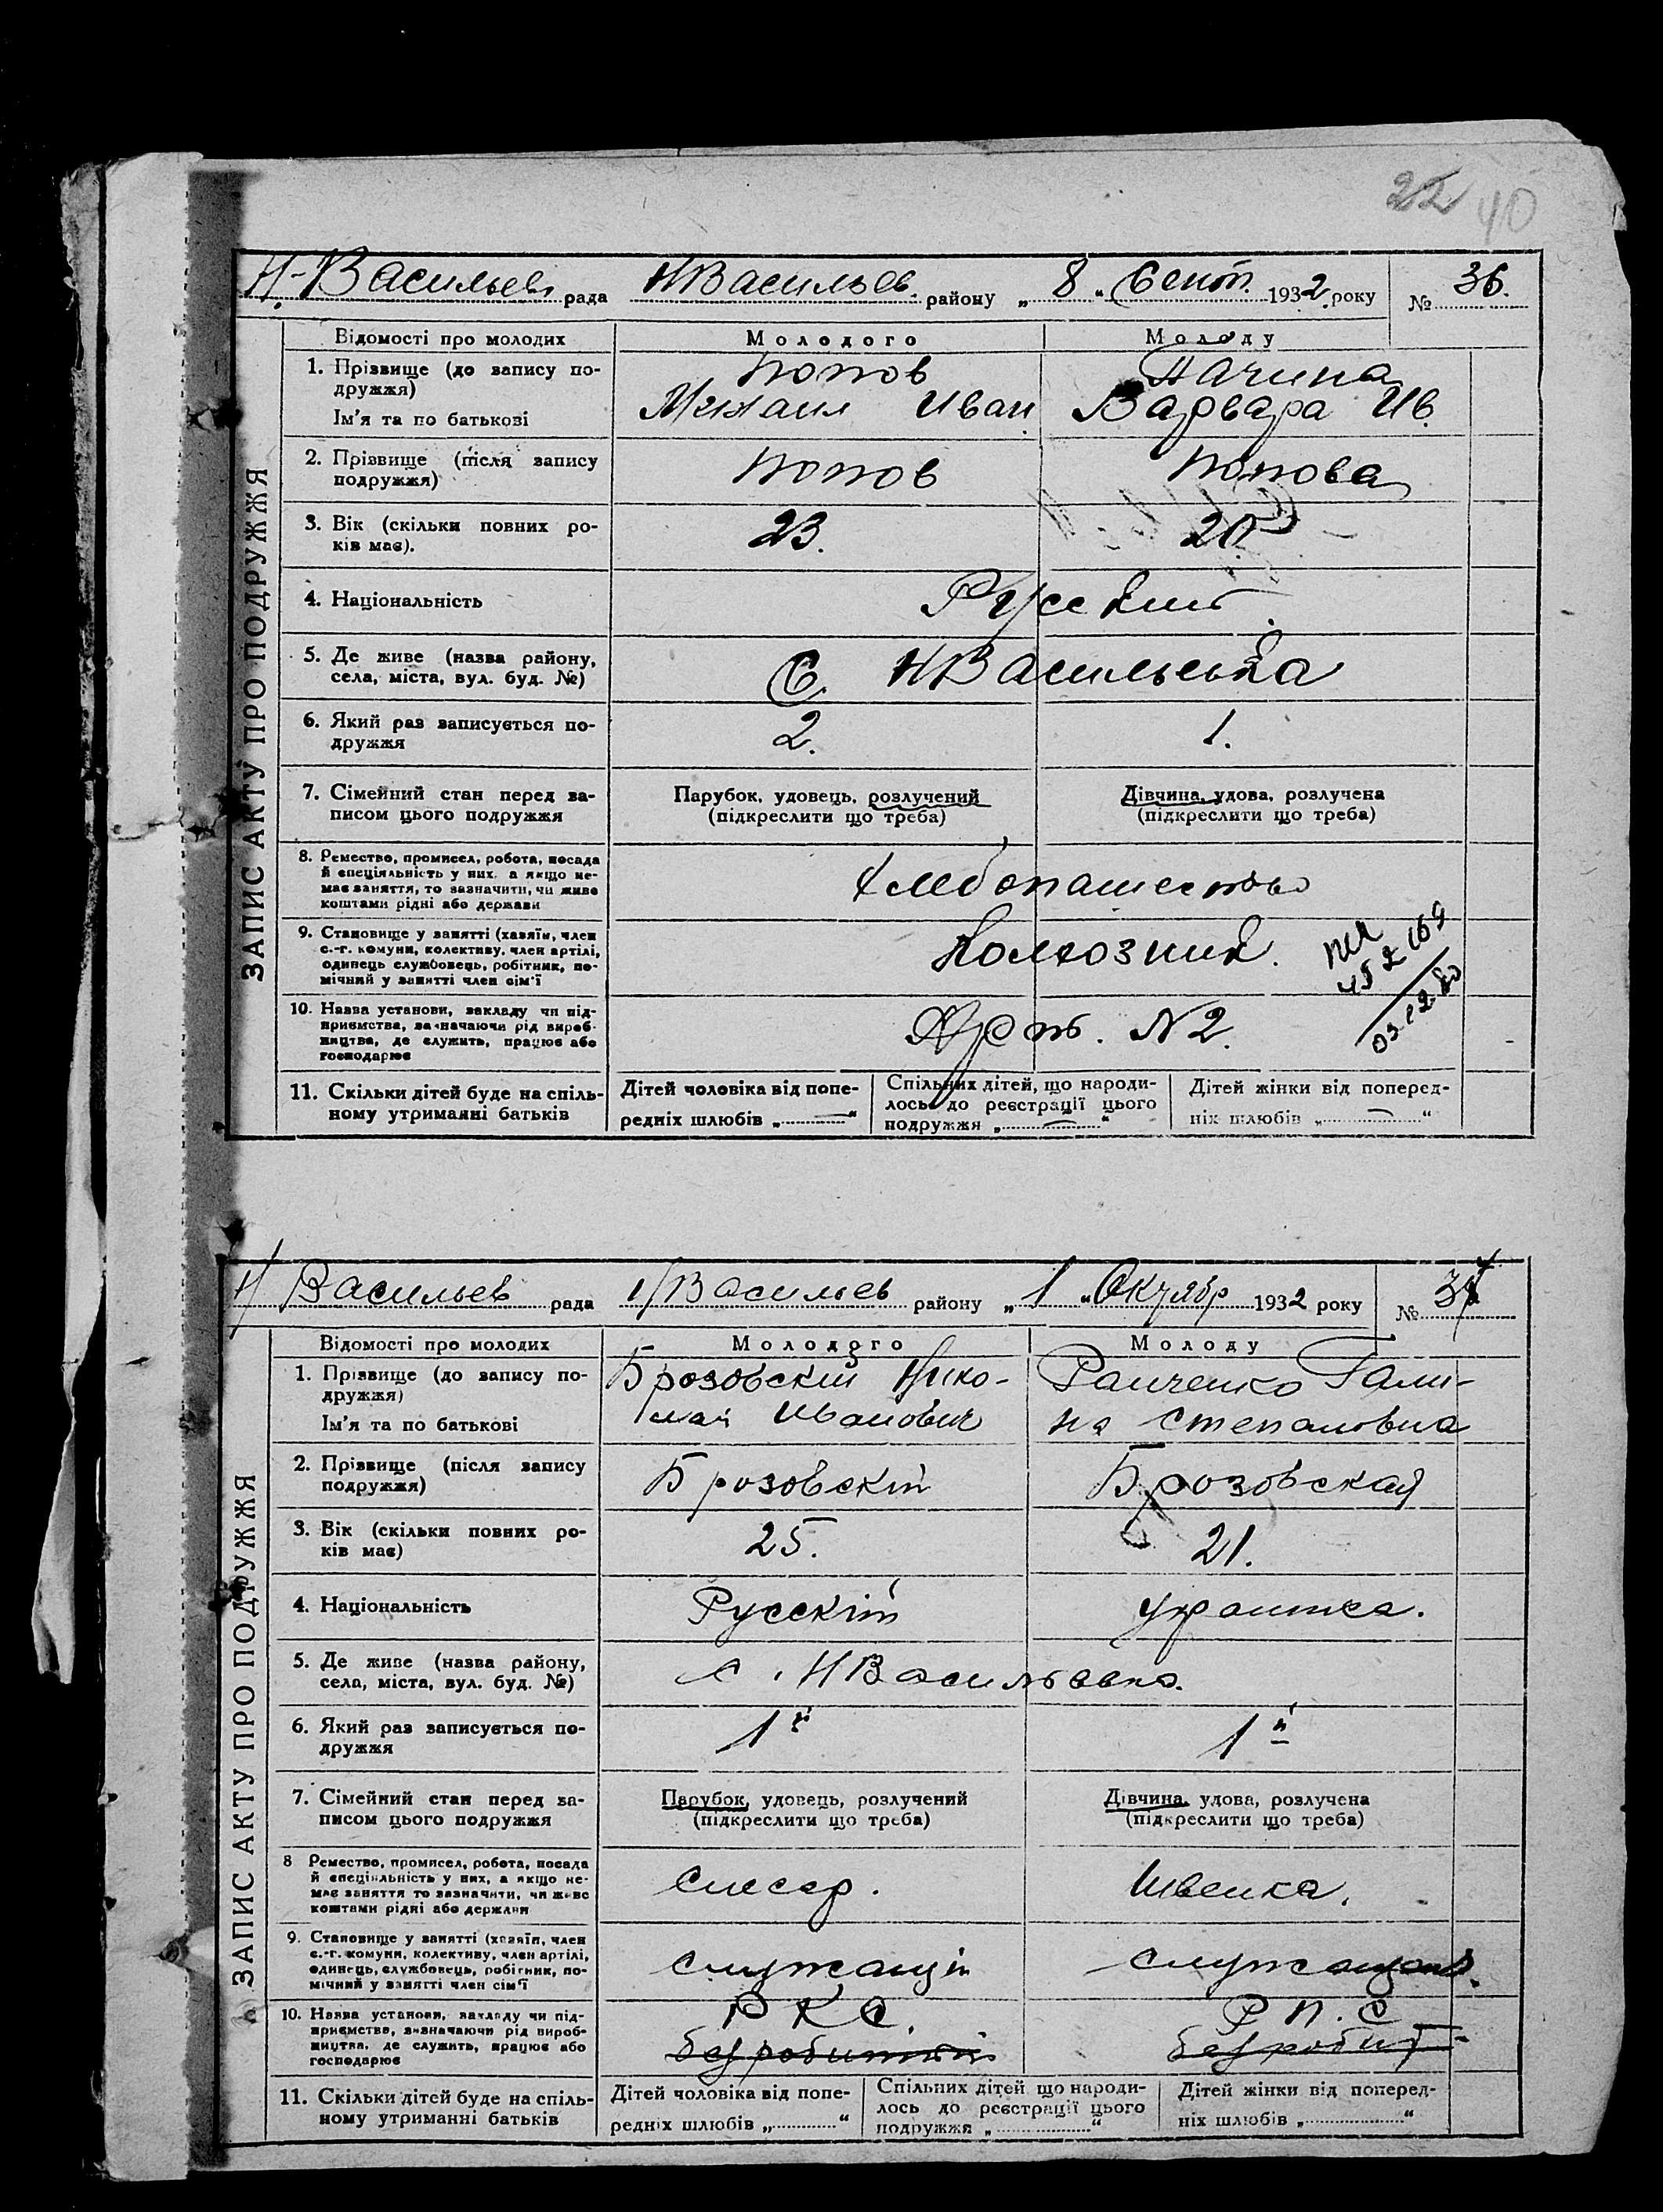 22 40
Н.-Васильев. рада Н Васильев. району „ 8 “ Сент. 1932 року № 36.
ЗАПИС АКТУ ПРО ПОДРУЖЖЯ
Відомості про молодих Молодого Молоду
1. Прізвище (до запису по- Попов
дружжя) Михаил Иван. Варвара Ив.
Ім'я та по батькові
2. Прізвище (після запису Попов Попова
подружжя)
3. Вік (скільки повних ро- 23. 20
ків має).
4. Національність Русские
5. Де живе (назва району, С. Н Васильевка
села, міста, вул. буд. №)
6. Який раз записується по- 2. 1.
дружжя
7. Сімейний стан перед за- Парубок, удовець, розлучений Дівчина, удова, розлучена
писом цього подружжя (підкреслити що треба) (підкреслити що треба)
8. Ремество, промисел, робота, посада
й спеціяльність у них, а якщо не- Хлебопашество
має заняття, то зазначити, чи живе
коштами рідні або держави
9. Становище у занятті (хазяїн, член
с.-г. комуни, колективу, член артілі, Колхозник.
одинець службовець, робітник, по-
мічний у занятті член сім'ї
10. Назва установи, закладу чи під-
приємства, зазначаючи рід вироб- Арт. N 2.
ництва, де служить, працює або
господарює
11. Скільки дітей буде на спіль- Дітей чоловіка від попе- Спільних дітей, що народи- Дітей жінки від поперед-
ному утриманні батьків редніх шлюбів „ — “ лось до реєстрації цього ніх шлюбів „ — “
подружжя „ — “
Н Васильев рада Н Васильев району „ 1 “ Октябр 1932 року № 37
ЗАПИС АКТУ ПРО ПОДРУЖЖЯ
Відомості про молодих Молодого Молоду
1. Прізвище (до запису по- Брозовскій Нико- Ганченко Гали-
дружжя) лай Иванович на Степановна
Ім'я та по батькові
2. Прізвище (після запису Брозовскій Брозовская
подружжя)
3. Вік (скільки повних ро- 25. 21.
ків має)
4. Національність Русскій
5. Де живе (назва району, с. Н Васильевка.
села, міста, вул. буд. №)
6. Який раз записується по- 1й 1й
дружжя
7. Сімейний стан перед за- Парубок, удовець, розлучений Дівчина, удова, розлучена
писом цього подружжя (підкреслити що треба) (підкреслити що треба)
8 Ремество, промисел, робота, посада
й спеціяльність у них, а якщо не- Слесар. Швейка.
має заняття то зазначити, чи живе
коштами рідні або держави
9. Становище у занятті (хазяїн, член
с.-г. комуни, колективу, член артілі, служащій служащая.
одинець, службовець, робітник, по-
мічний у занятті член сім'ї
10. Назва установи, закладу чи під- Р К С. Р П. С
приємства, зазначаючи рід вироб-
ництва, де служить, працює або безробітний безробіт-
господарює
11. Скільки дітей буде на спіль- Дітей чоловіка від попе- Спільних дітей що народи- Дітей жінки від поперед-
ному утриманні батьків редніх шлюбів „ “ лось до реєстрації цього ніх шлюбів „ “
подружжя „ “